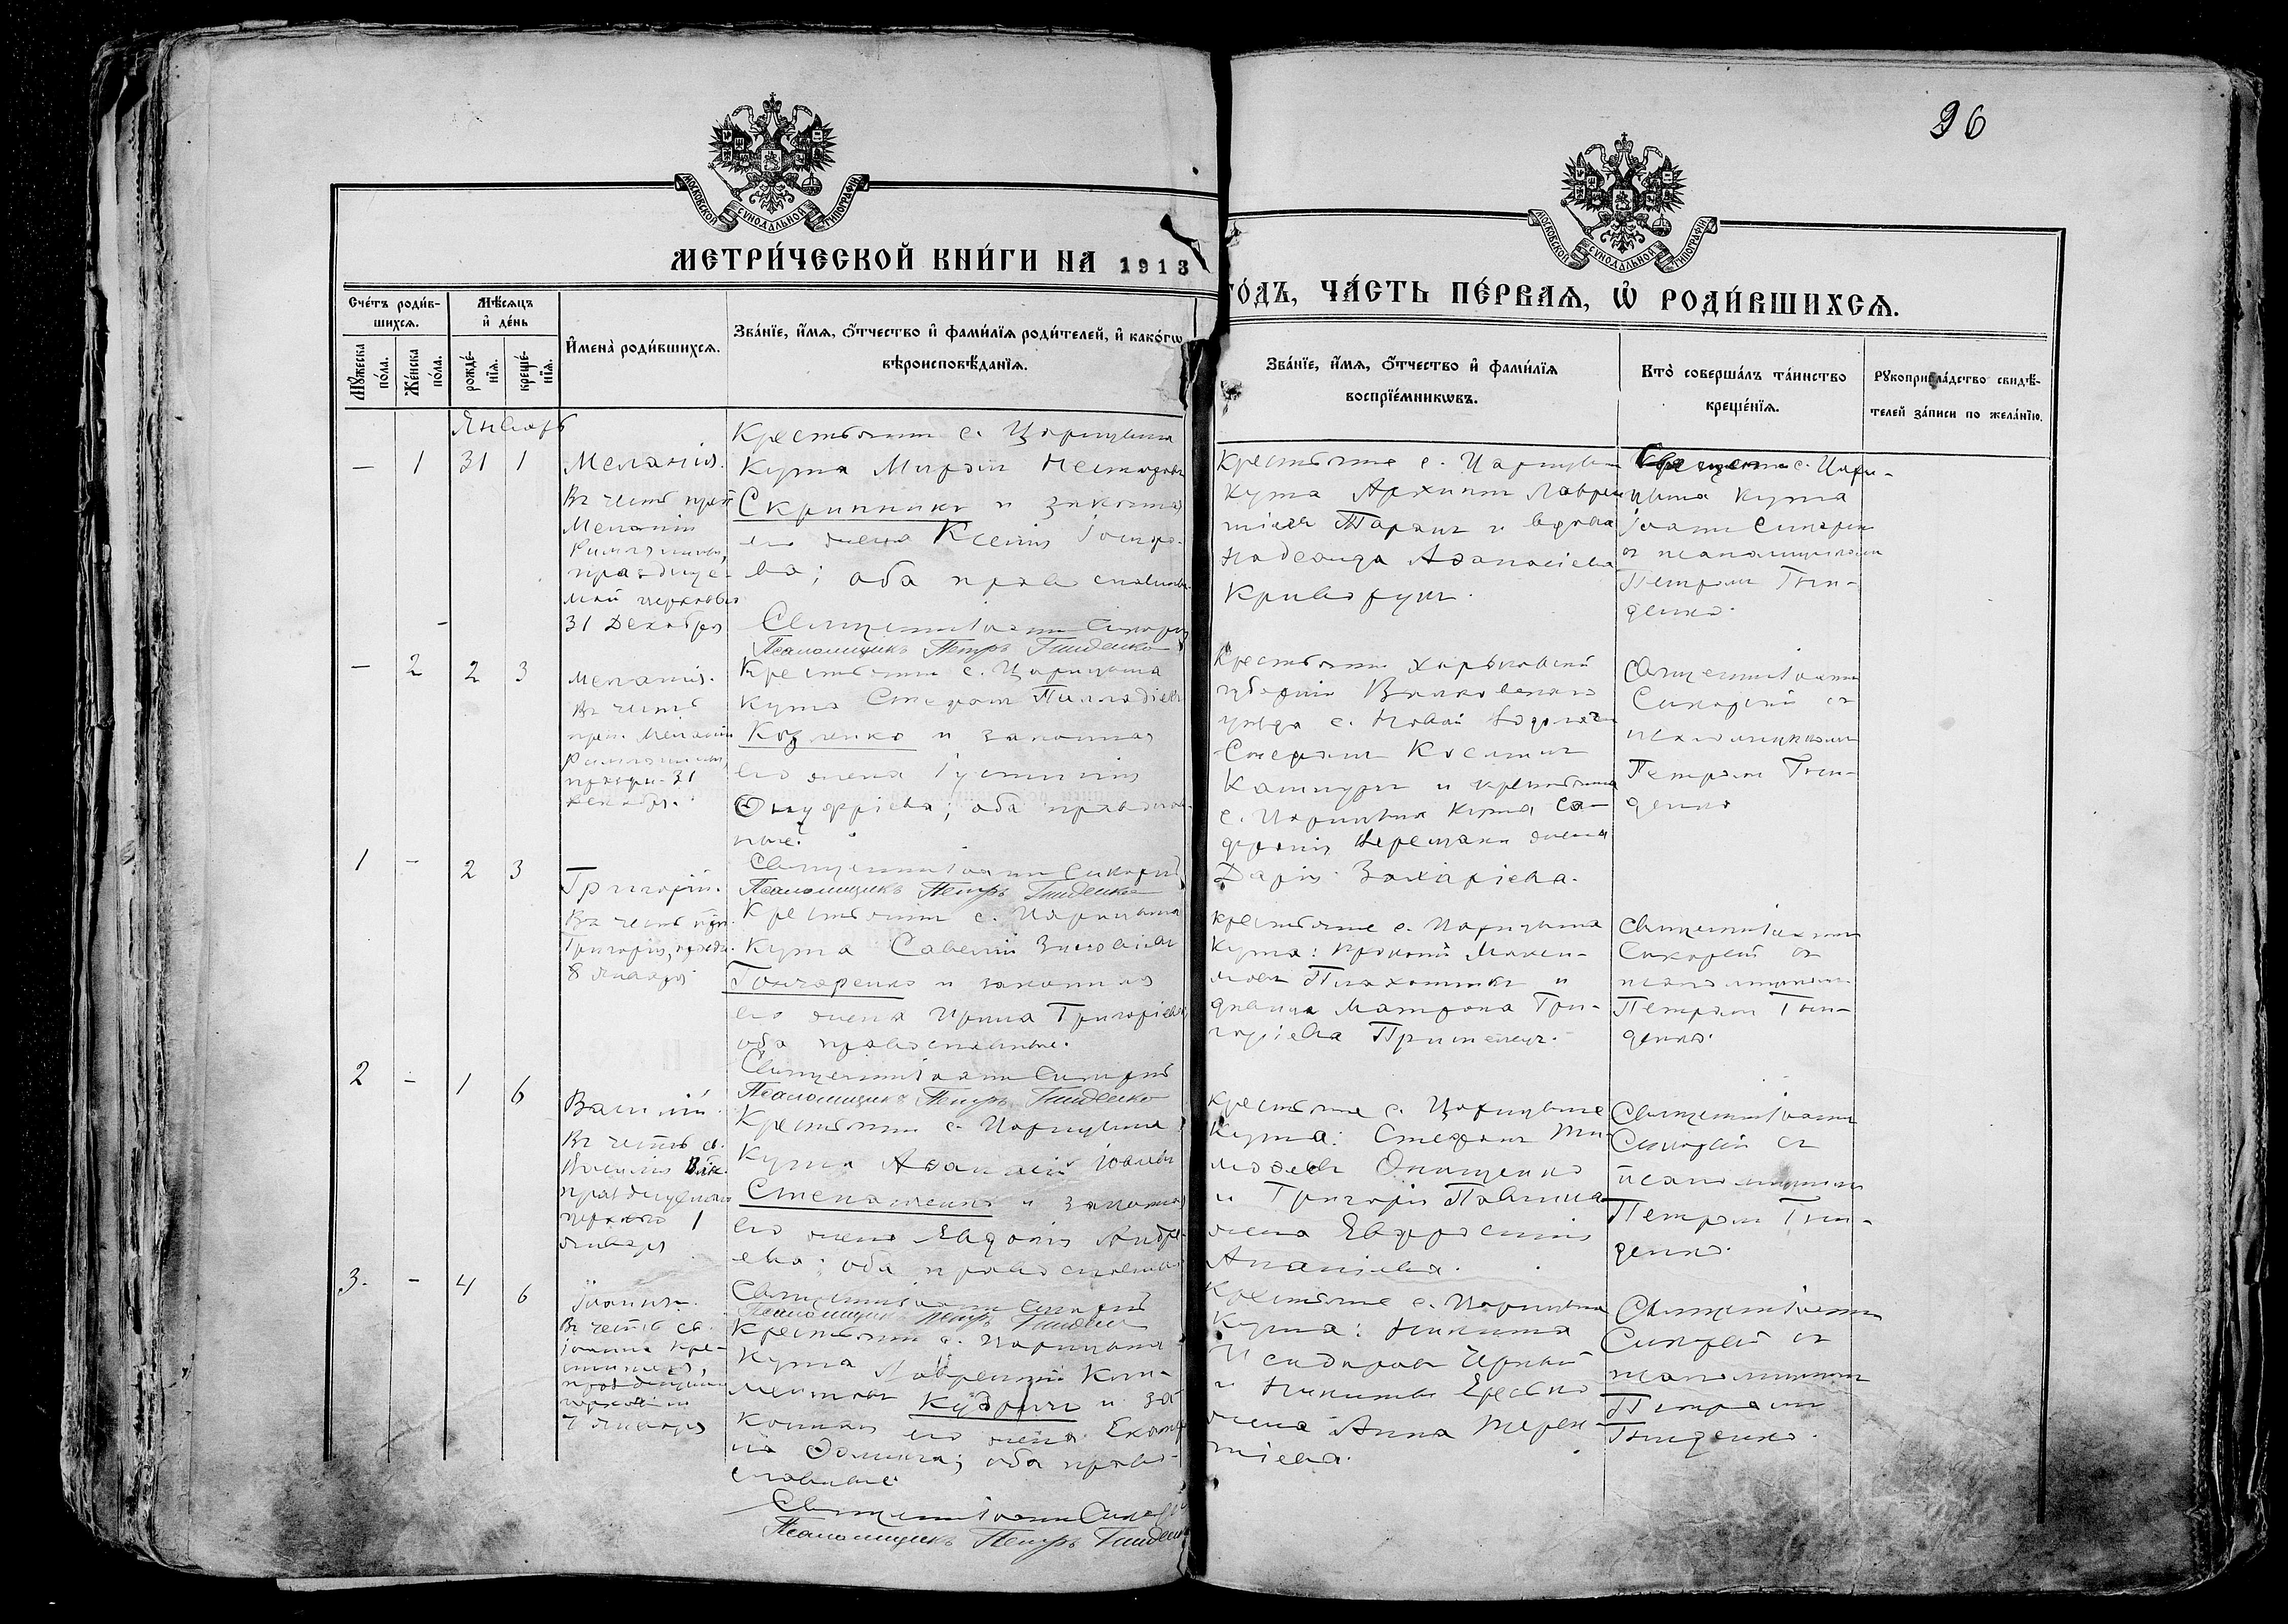 96
МОСКОВСКОЙ СѴНОДАЛЬНОЙ ТИПОГРАФІИ
МОСКОВСКОЙ СѴНОДАЛЬНОЙ ТИПОГРАФІИ
МЕТРИ́ЧЕСКОЙ КНИ́ГИ НА 1913
ГО́ДЪ, ЧА́СТЬ ПЕ́РВАЯ, Ѡ҆ РОДИ́ВШИХСЯ.
Сче́тъ роди́в-
шихся.
Мѣ́сяцъ
и҆ де́нь
Мꙋ́жеска
по́ла.
Же́нска
по́ла.
рожде́-
нїя.
креще́-
нїя.
И҆мена̀ роди́вшихся.
Зва́нїе, и҆́мя, ѻ҆́тчество и҆ фами́лїя роди́телей, и҆ како́гѡ
вѣроисповѣ́данїя.
Зва́нїе, и҆́мя, ѻ҆́тчество и҆ фами́лїя
воспрїе́мникѡвъ.
Кто̀ соверша́лъ та́инство
креще́нїя.
Рꙋкоприкла́дство свидѣ́-
телей за́писи по жела́нїю.
Январь
— 1 31 1
Меланія.
Въ честь преп.
Меланіи
Римляныни,
празднуе-
мой церковью
31 Декабря
Крестьянинъ с. Царицына
Кута Миронъ Несторовъ
Скринникъ и законная
его жена Ксенія
ва; оба православные.
Священникъ Іоаннъ Сикорскій
Псаломщикъ Петръ Гниденко
Крестьяне с. Царицына
Кута Архипъ Лаврен-
тіевъ Таранъ и вдова
Надежда Аѳанасіева
Криворучко.
Священникъ с. Цари-
цына Кута
Іоаннъ Сикорскій
съ псаломщикомъ
Петромъ Гни-
денко.
— 2 2 3
Меланія.
Въ честь
преп. Меланіи
Римляныни,
праздн. 31
декабря.
Крестьянинъ с. Царицына
Кута Стефанъ Палладіевъ
Козленко и законная
его жена Іустинія
Онуфріева; оба православ-
ные.
Священникъ Іоаннъ Сикорскій
Псаломщикъ Петръ Гниденко
Крестьянинъ Харьковской
губерніи Валковскаго
уезда с. Новой Водолаги
Стефанъ Косминъ
и крестьянина
с. Царицына Кута Со-
фронія Верещаки жена
Дарія Захаріева.
Священникъ Іоаннъ
Сикорскій съ
псаломщикомъ
Петромъ Гни-
денко
1 — 2 3
Григорій.
Въ честь преп.
Григорія, праздн.
8 Января
Крестьянинъ с. Царицына
Кута Савелій Зиновіевъ
Гончаренко и законная
его жена Ирина Григоріева;
оба православные.
Священникъ Іоаннъ Сикорскій
Псаломщикъ Петръ Гниденко
Крестьяне с. Царицына
Кута: Прокопій Макси-
мовъ Плахотникъ и
девица Матрона Гри-
горіева
Священникъ Іоаннъ
Сикорскій съ
псаломщикомъ
Петромъ Гни-
денко.
2 — 1 6
Василій.
Въ честь св.
Василія Вел.
празднуемаго
церковью 1
января
Крестьянинъ с. Царицына
Кута Аѳанасій Іовлевъ
Степаненко и законная
его жена Евдокія Андре-
ева; оба православные
Священникъ Іоаннъ Сикорскій
Псаломщикъ Петръ Гниденко
Крестьяне с. Царицына
Кута: Стефанъ Ти-
моѳеевъ Онищенко
и Григорія
жена Евфросинія
Ананіева.
Священникъ Іоаннъ
Сикорскій съ
псаломщикомъ
Петромъ Гни-
денко.
3. — 4 6
Іоаннъ.
Въ честь св.
Іоанна Кре-
стителя,
празднуемаго
церковью
7 Января
Крестьянинъ с. Царицына
Кута Лаврентій Кли-
ментовъ Кудринъ и за-
конная его жена Екатери-
на Ѳомина; оба право-
славные
Священникъ Іоаннъ Сикорскій
Псаломщикъ Петръ Гниденко
Крестьяне с. Царицына
Кута: Никита
Исидоровъ Черный
и Никиты
жена Анна Терен-
тіева.
Священникъ Іоаннъ
Сикорскій съ
псаломщикомъ
Петромъ
Гниденко.